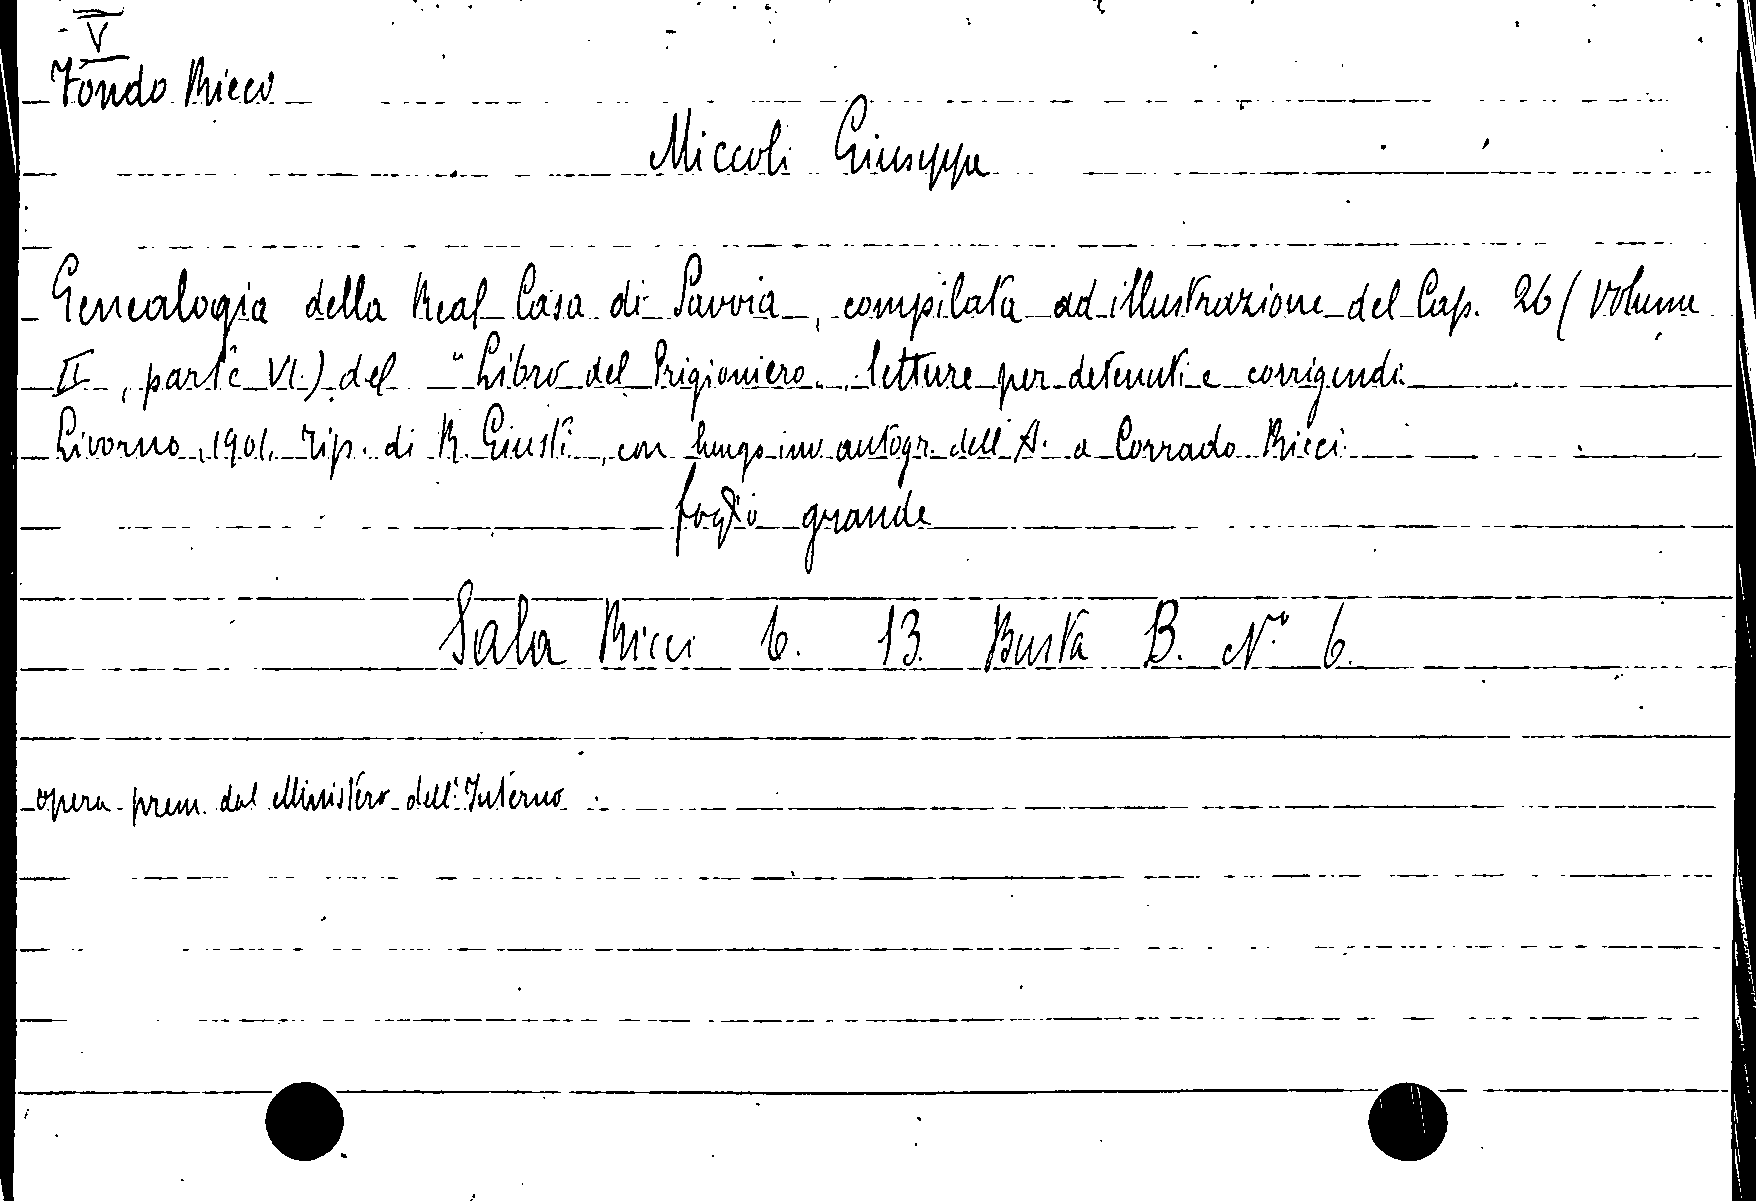 V
Fondo Ricci
Miccoli Giuseppe
Genealogia della Real Casa di Savoia, compilata ad illustrazione del Cap. 26 (Volume
II, parte VI.) del "Libro del Prigioniero„ letture per detenuti e corrigendi
Livorno, 1901. Tip. di R. Giusti, con lungo inv autogr. dell'A. a Corrado Ricci
foglio grande
Sala Ricci 6. 13. Busta B. N.° 6.
opera prem. dal Ministero dell'Interno.